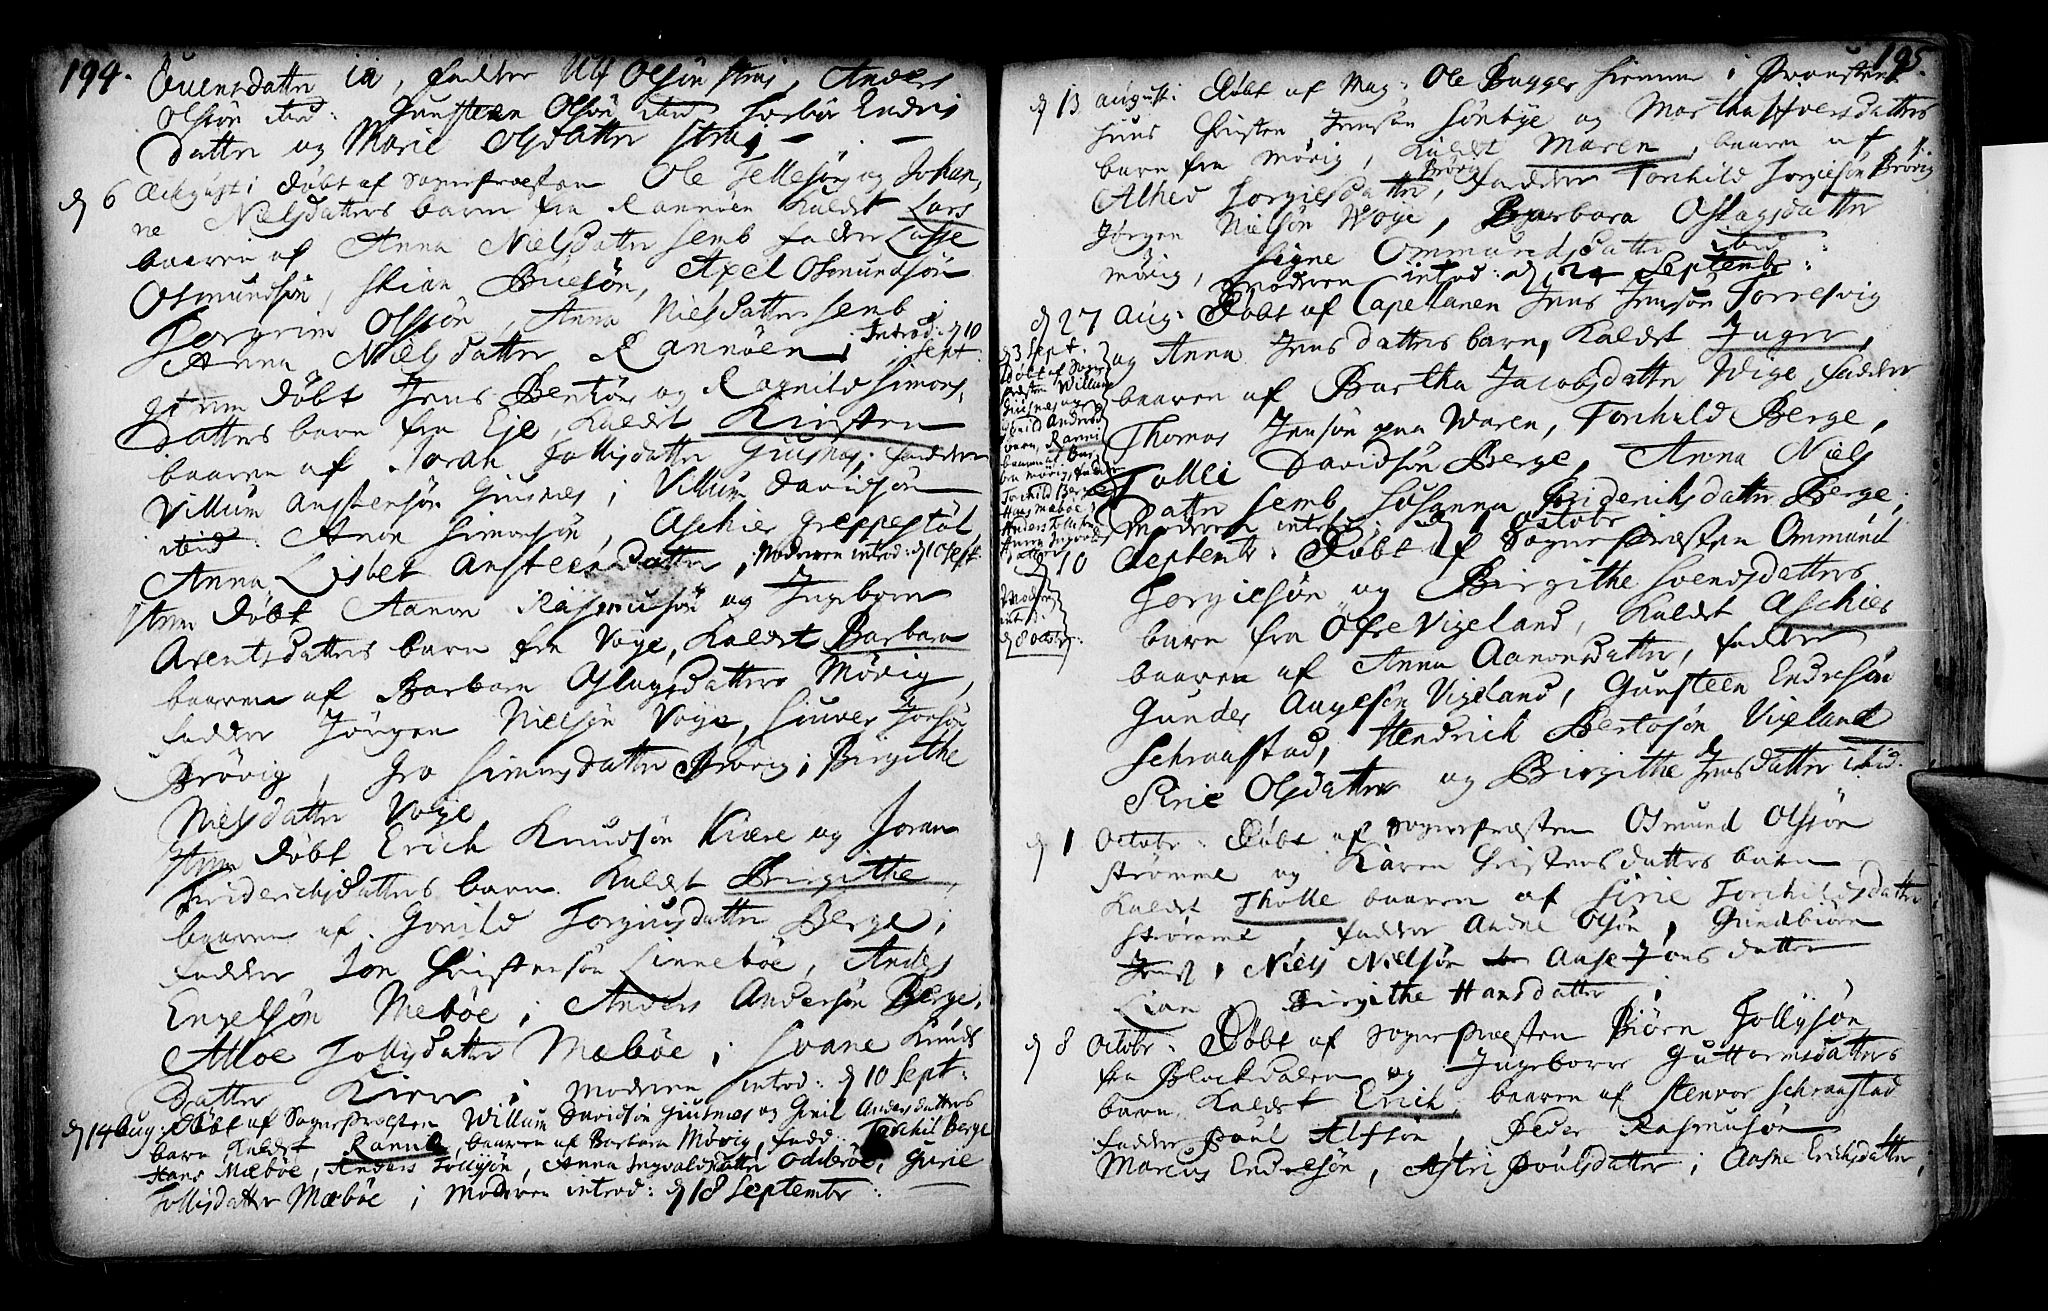 194.
Ouensdatter ia, fadder Ulf Olsøn Strai, Anders
Olsøn ibid: Gunsteen Olsøn ibid Torbør Endris
datter og Marie Olsdatter Strai
d 6 Augusti døbt af Sognepræsten Ole Tellefsøn og Johan-
ne Nielsdatters barn fra Rannøen kaldet Lars
baaren af Anna Nielsdatter Semb fadder Lasse
Osmundsøn, Axel Osmundsøn
Torgrim Olsøn, Anna Nielsdatter Semb
Anna Nielsdatter Rannøen; Introd: d 10
Sept:
item døbt Jens Bentsøn og Ragnild Simons-
datters barn fra Eje, kaldet Kirsten
baaren af Torah Tollisdatter Giusnes; faddere
Villum Anstensøn Giusnes; Villum Davidsøn
ibid: Anon Simonsøn, Aschier Greppestøl
Anna Lisbet Ansteensdatter, Moderen introd: d 10 Sept:
item døbt Aanon Rasmusøn og Ingeborn
Arentsdatters barn fra Voye, kaldet Barbara
baaren af Barbara Oslagsdatter Mørig,
fadder Jørgen Nielsøn Voye, Siuver Jonsøn
Brøvig, Gro Simonsdatter Brøvig; Birgithe
Nielsdatter Voye
item døbt Erich Knudsøn Kiære og Joran
Friderichsdatters barn kaldet Birgithe,
baaren af Gonild Torgiusdatter Berge;
fadder Jon Christensøn Linnebøe, Anders
Engelsøn Mebøe; Anders Andersøn Berge,
Alloe Tollisdatter Mæbøe; Svane Knuds
datter Kiere; Moderen introd: d 10 Sept:
d 14 Aug: Døbt af Sognepræsten Willum Davidsøn Giusnes og Gonil Andersdatters
barn, kaldet Rannil, baaren af Barbara Mørig, fadd: Torchil Berge
Hans Mæbøe, Anders Tollisøn, Anna Ingvaldsdatter Odderøe, Gurie
Tollisdatter Mæbøe; Moderen introd: d 18 Septembr:
195.
d 13 Augusti Døbt af Mag: Ole Bugge hiemme i Præste
huus Christen Jensøn Sønbye og Martha Iversdatters
barn fra Mørig, kaldet Maren, baaren af
Alhed Torgiesdatter Brøvig, fadder Torchild Torgiesøn Brøvig
Jørgen Nielsøn Voye, Barbara Oslagsdatter
Mørig, Signe Ommundsdatter ibid:
Moderen introd: d 24 Septembr:
d 27 Aug: Døbt af Capellanen Jens Jensøn Torresvig
og Anna Jensdatters barn, kaldet Inger,
baaren af Bartha Jacobsdatter Wige, fadder
Thomas Jensøn paa Waren, Torchild Berge,
Tolli Davidsøn Berge, Anna Niels
datter Semb, Susanna Friderichsdatter Berge;
Moderen introd: d 1 Octobr
d 3 Sept:
Døbt af Sogne
præsten Willum
Giusnes og
Gonild Andersd
barn, Rannil
baaren af Bar
bra Mørig, fadder
Torchild Berge
Hans Mæbøe
Anders Tollisøn
Anna Ingvolds
datter
Moderen
introd:
d 8 Octobr:
d 10 Septembr: Døbt af Sognepræsten Ommund
Torgiesøn og Birgithe Svendsdatters
barn fra Øfre Vigeland, kaldet Aschier
baaren af Anna Aanonsdatter, fadder
Gunder Augesøn Vigeland, Gunsteen Endresøn
Schraastad, Hendrich Bertosøn Vigeland
Sirie Olsdatter og Birgithe Jensdatter ibid:
d 1 Octobr: Døbt af Sognepræsten Osmund Olsøn
Strømme og Karen Christensdatters barn
kaldet Tholle baaren af Sirie Torchildsdatter
Strømme, fadder Andre Olsøn, Gundbiørn
Niels Nielsøn Aase Jonsdatter
Lian Birgithe Hansdatter;
d 8 Octobr: Døbt af Sognepræsten Biørn Tollisøn
fra Blockdalen og Ingeborre Guttormsdatters
barn kaldet Erich, baaren af Stenvor Schraastad
fadder Poul Alfsøn, Peder Rasmusøn
Marcus Endresøn, Astri Poulsdatter; Aasne Erichsdatter,